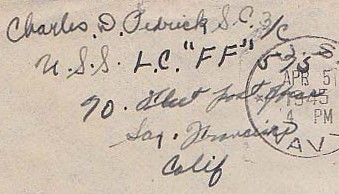 Charles. D. Pedrick S.C. 3/C
U.S.S. L.C. "FF" 575
%. Fleet Post Office
San. Francisco
Calif
U.S.
APR 5
1945
4 PM
NAVY